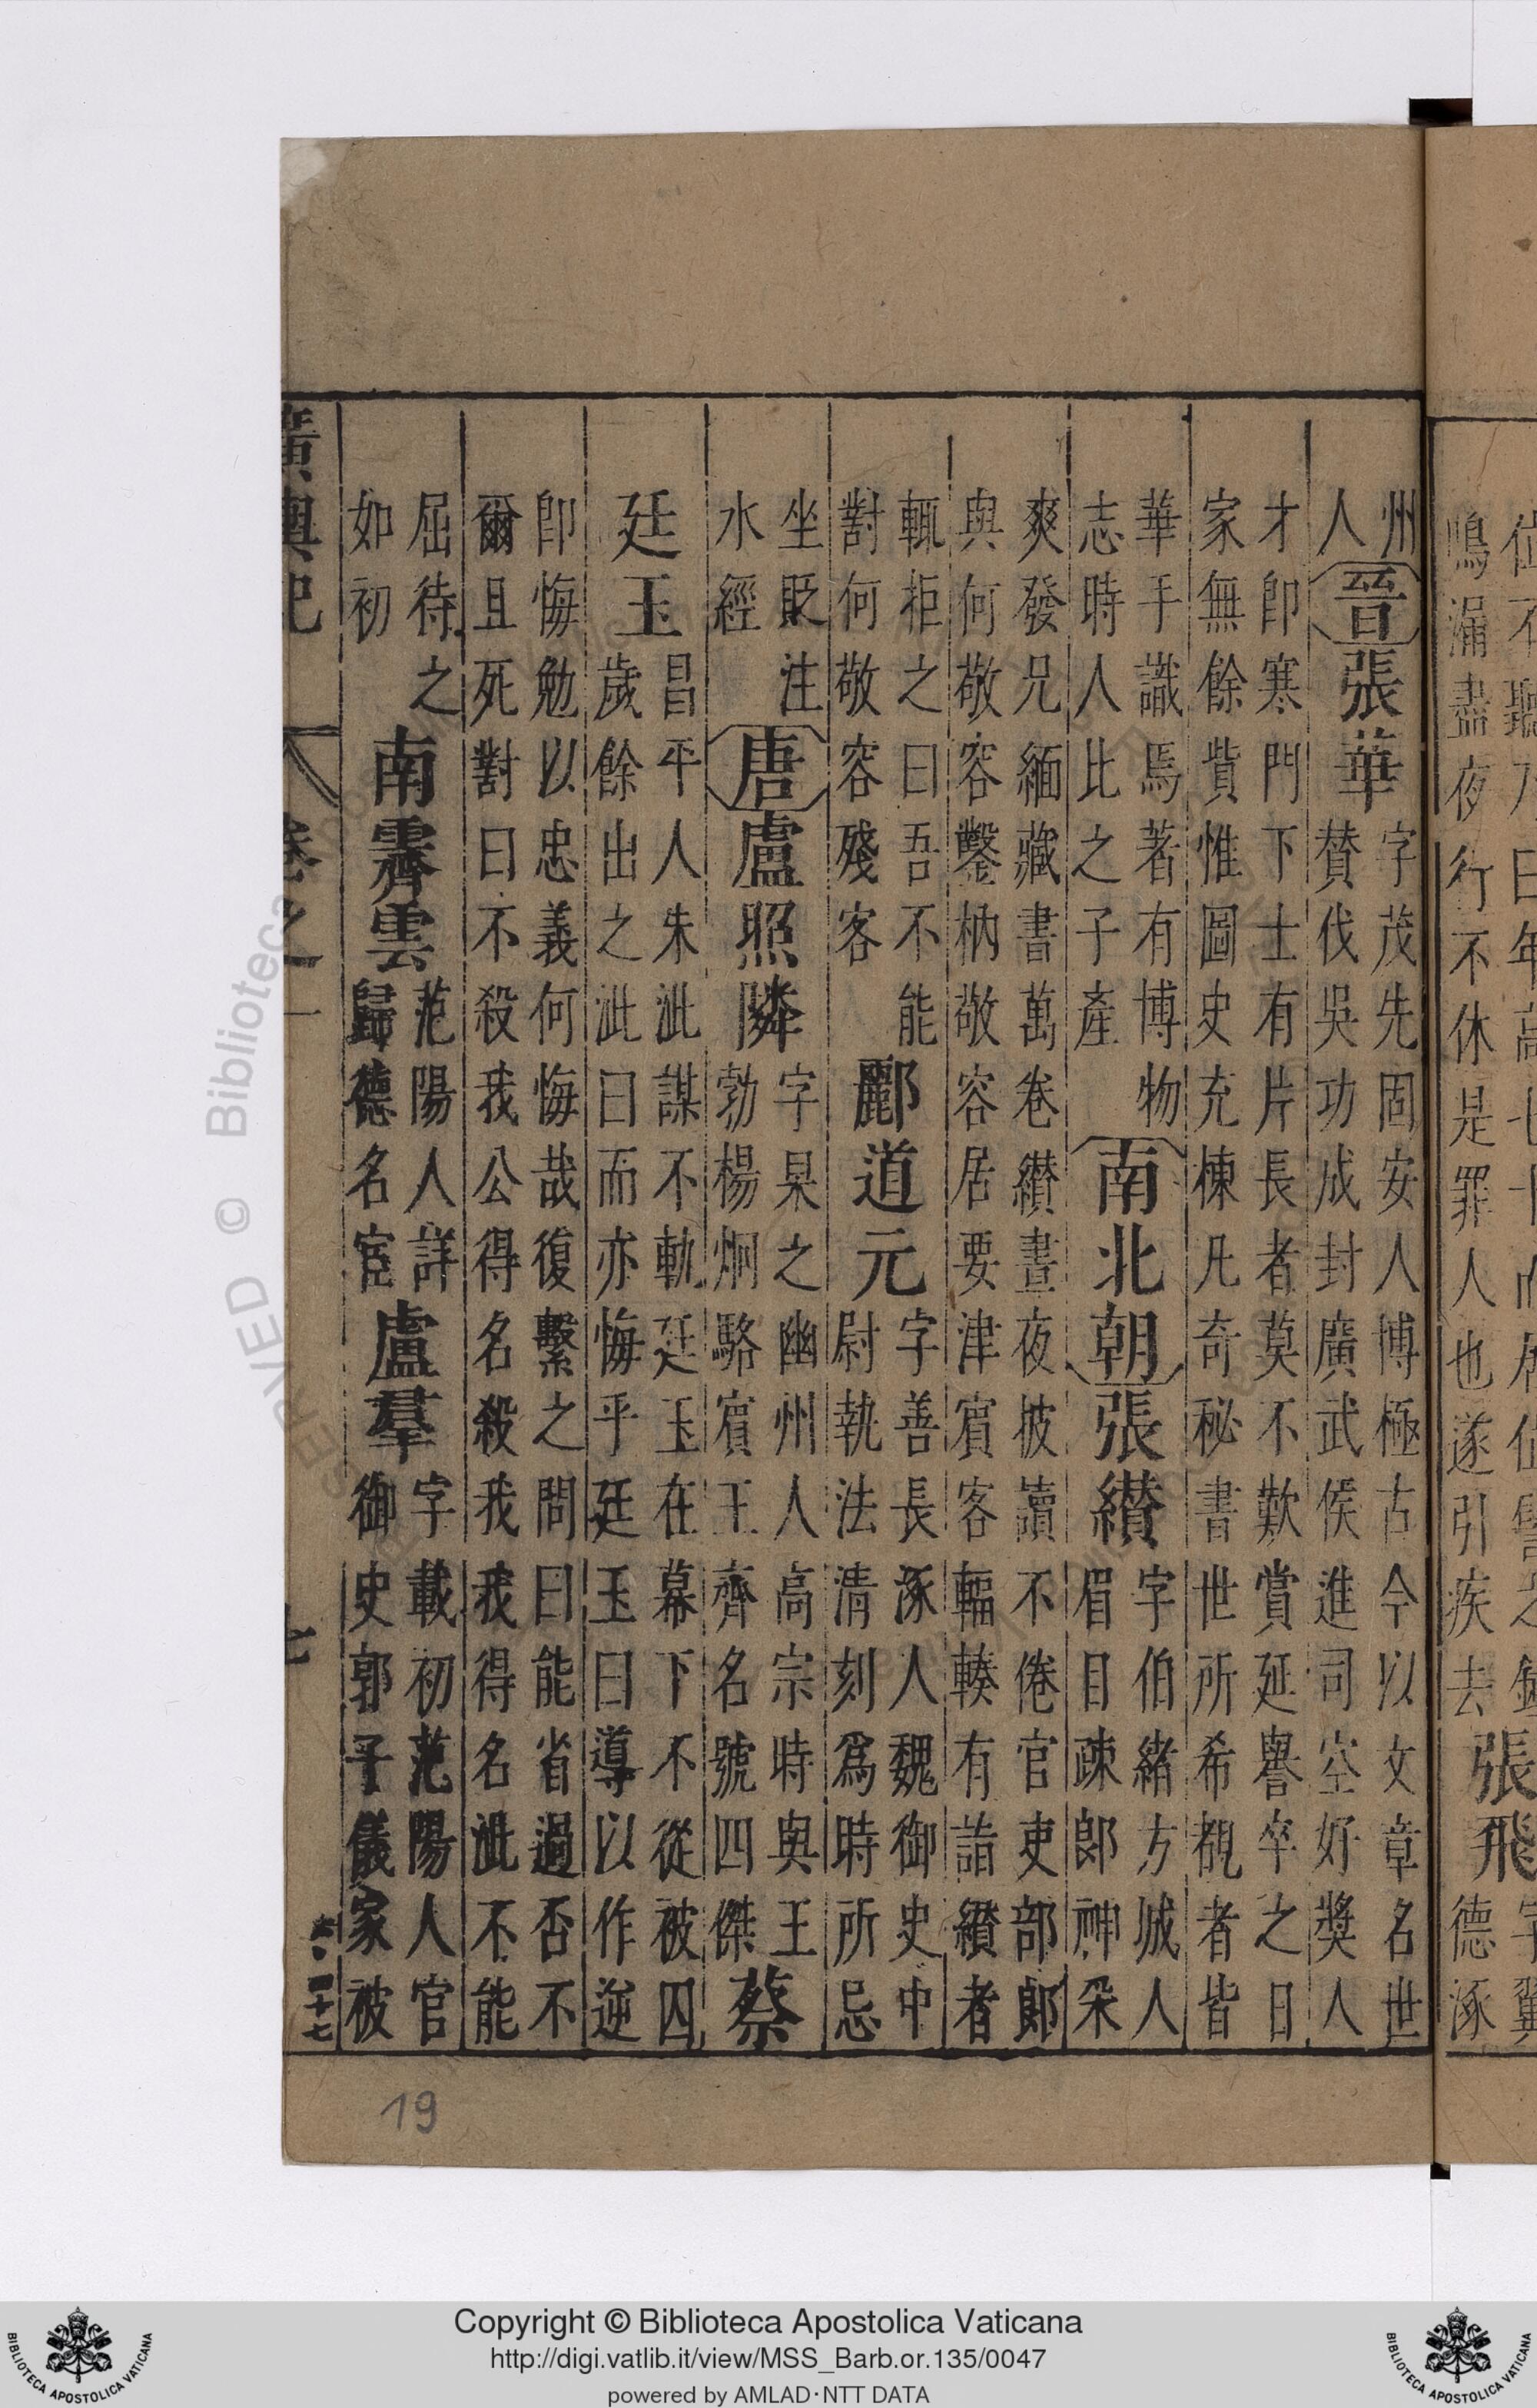 鳴漏盡夜行不休是罪人也遂引疾去張飛字翼德涿
州人晉張華字茂先固安人博極古今以文章名世贊伐吳功成封廣武侯進司空好獎人
才卽寒門下士有片長者莫不歎賞延譽卒之日家無餘貲惟圖史充棟凡奇秘書世所希覩者皆
華手識焉著有博物志時人比之子產南北朝張纘字伯緒方城人眉目疎郎神采
爽發兄緬藏書萬卷纘晝夜披讀不倦官吏部郎與何敬容鑿枘敬容居要津賓客輻輳有詣纘者
輒柜之曰吾不能對何敬容殘客酈道元字善長涿人魏御史中尉執法清刻爲時所忌
坐貶注水經唐盧照隣字杲之幽州人高宗時與王勃楊炯駱賓王齊名號四傑蔡
廷玉昌平人朱泚謀不軌廷玉在幕下不從被囚歲餘出之泚曰而亦悔乎廷玉曰導以作逆
卽悔勉以忠義何悔哉復繫之問曰能省過否不爾且死對曰不殺我公得名殺我我得名泚不能
屈待之如初南霽雲范陽人詳歸德名宦盧羣字載初范陽人官御史郭子儀家被
廣輿記 卷之一 七
19
© Biblioteca
Copyright © Biblioteca Apostolica Vaticana
http://digi.vatlib.it/view/MSS_Barb.or.135/0047
powered by AMLAD·NTT DATA
BIBLIOTECA APOSTOLICA VATICANA
BIBLIOTECA APOSTOLICA VATICANA